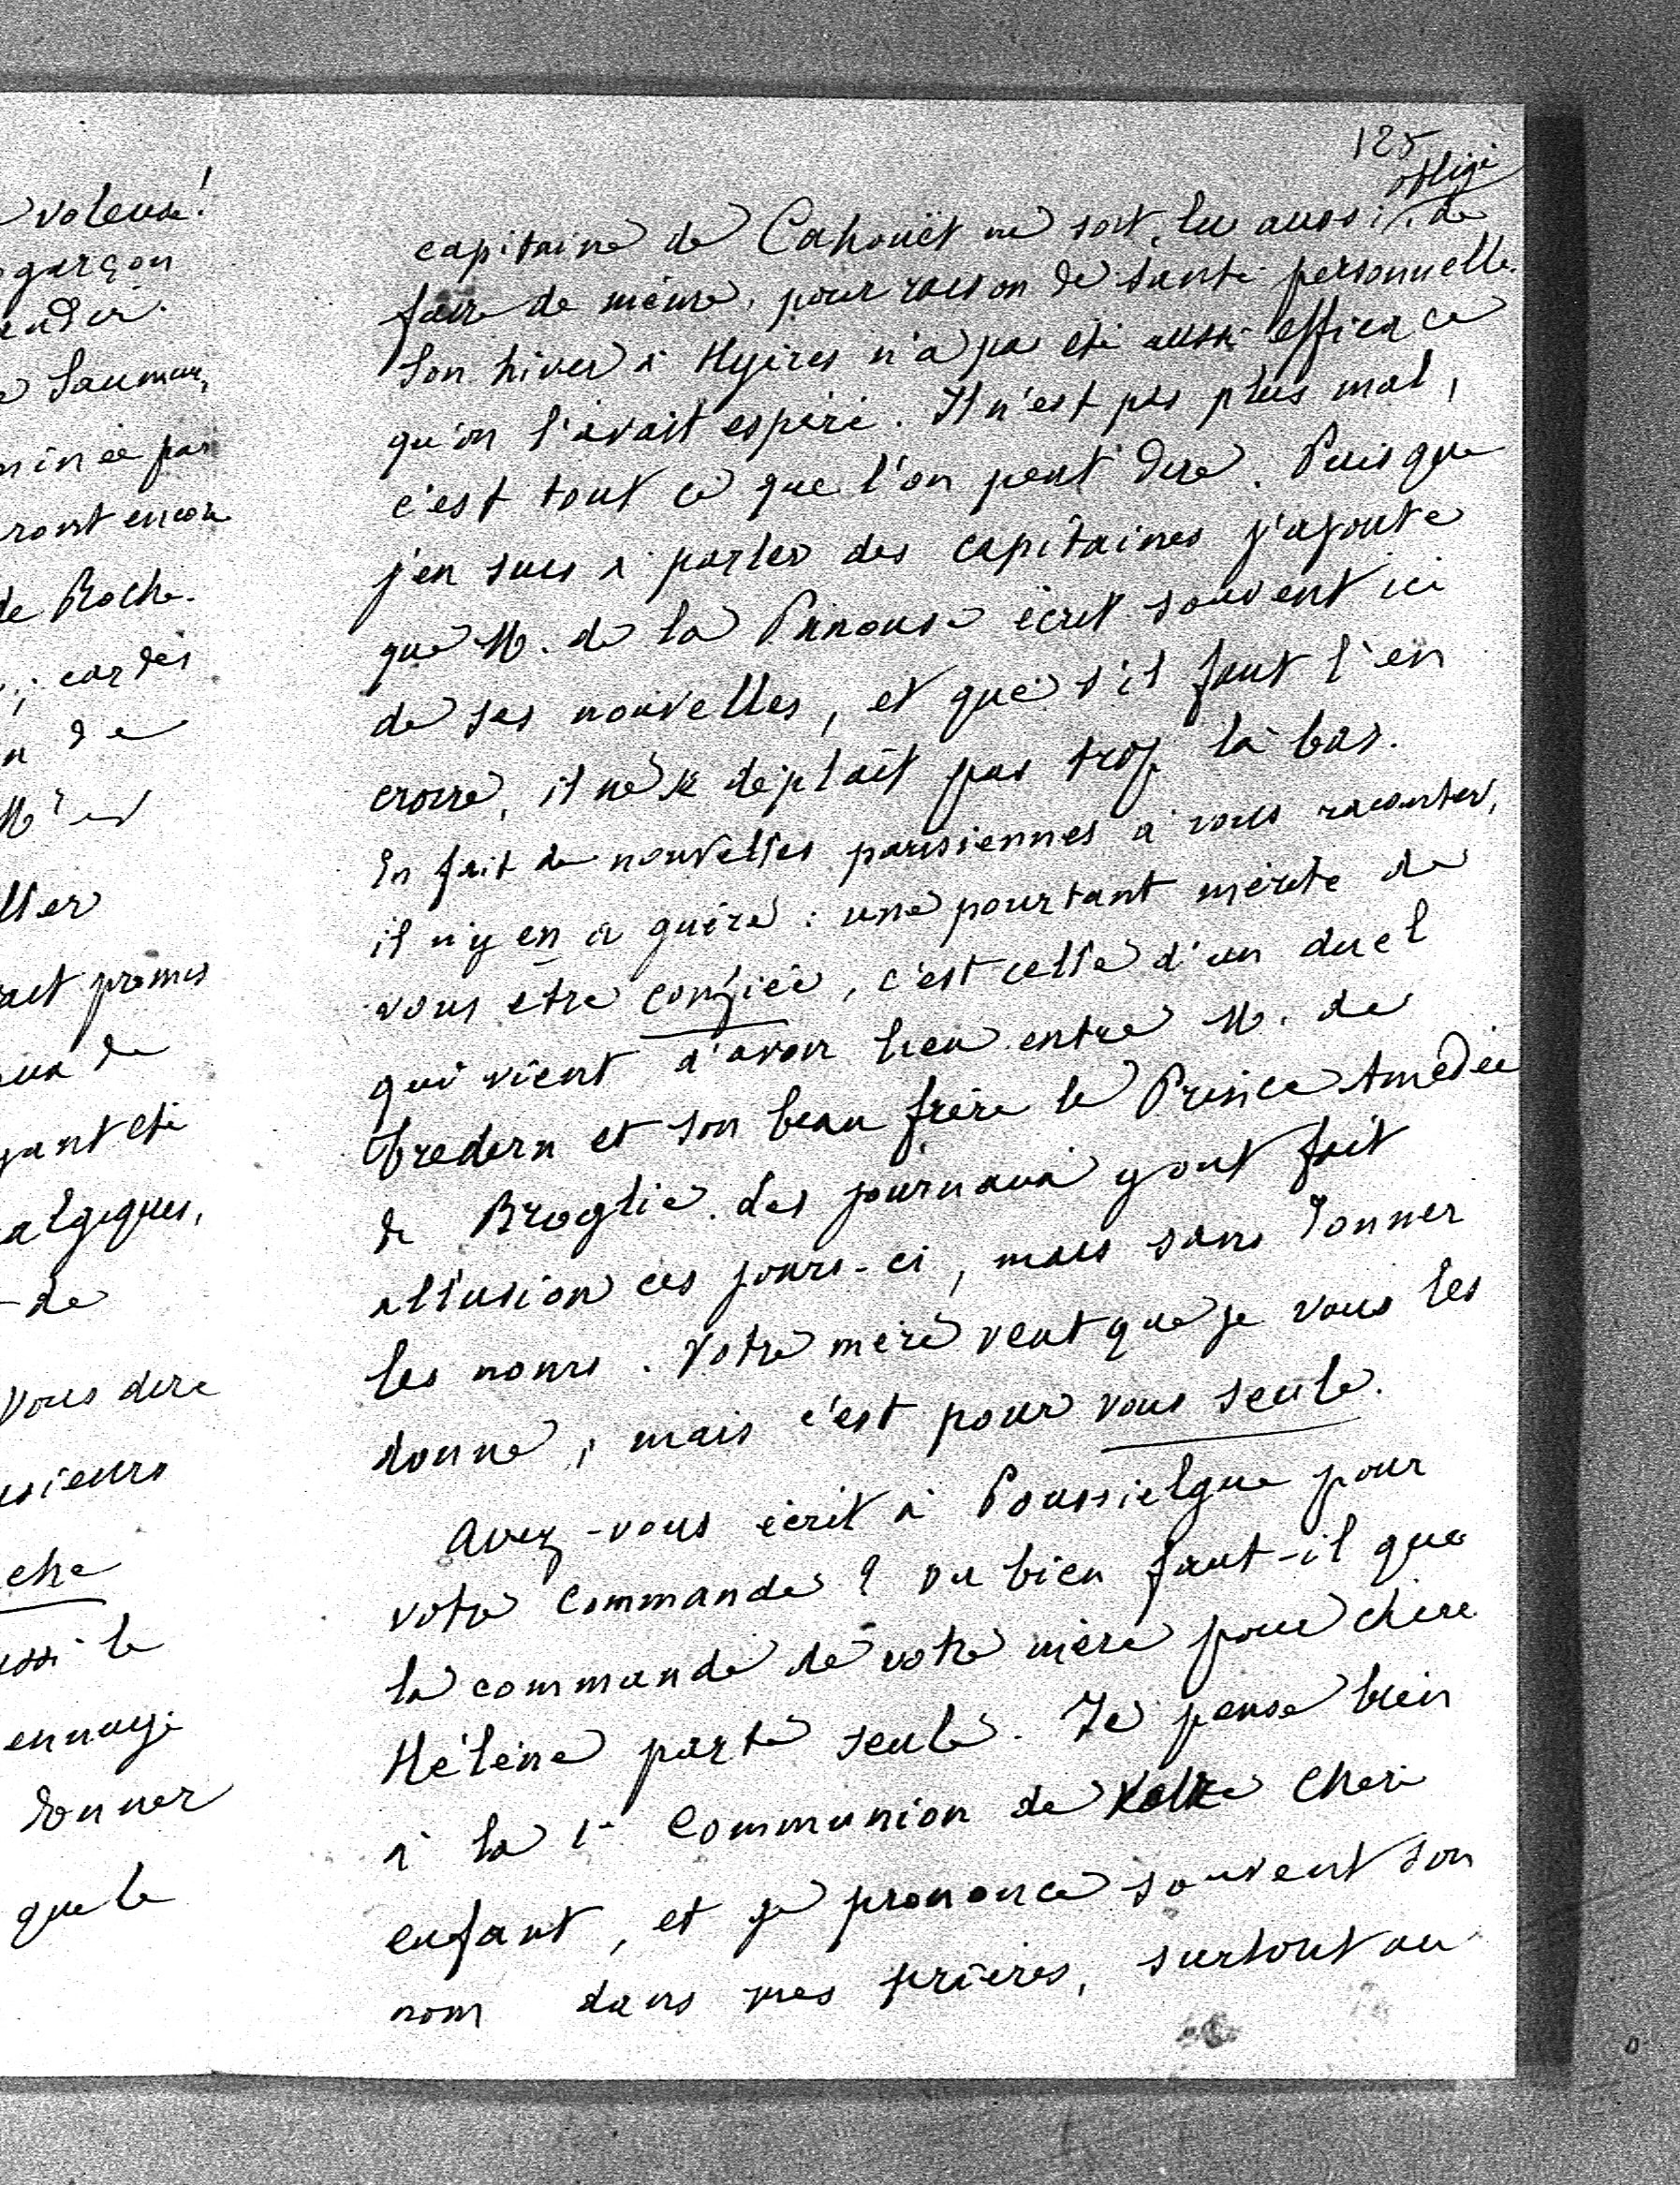 voleuse!
garçon
Saumur,
minée par
ront encore
de Roche.
; car dès
n de
ller
ait promis
de
yant été
algiques,
de
vous dire
usieurs
che
ussi le
ennuyé
donner
que le
125
obligé
capitaine de Cahouët ne soit, lui aussi, de
faire de même, pour raison de santé personnelle.
Son hiver à Hyères n'a pas été aussi efficace
qu'on l'avait espéré. Il n'est pas plus mal,
c'est tout ce que l'on peut dire. Puisque
j'en suis à parler des capitaines j'ajoute
que M. de la Panouse écrit souvent ici
de ses nouvelles, et que s'il faut l'en
croire, il ne se déplaît pas trop là-bas.
En fait de nouvelles parisiennes à vous raconter,
il n'y en a guère : une pourtant mérite de
vous être confiée, c'est celle d'un duel
qui vient d'avoir lieu entre M. de
Trédern et son beau frère le Prince Amédée
de Broglie. Les journaux y ont fait
allusion ces jours-ci, mais sans donner
les noms. Votre mère veut que je vous les
donne, mais c'est pour vous seule.
Avez-vous écrit à Poussielgue pour
votre commande ? Ou bien faut-il que
la commande de votre mère pour chère
Hélène parte seule. Je pense bien
à la 1e Communion de votre chère
enfant, et je prononce souvent son
nom dans mes prières, surtout au